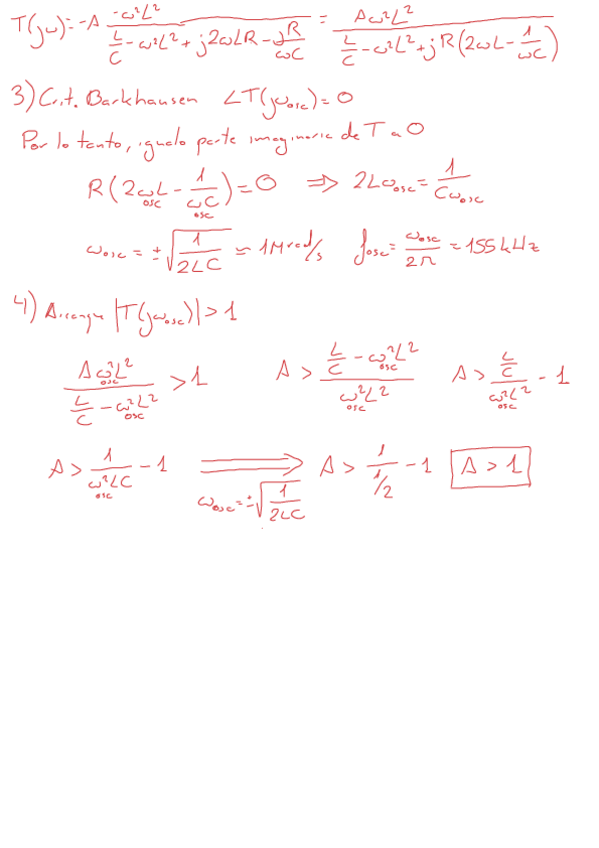 T(jω) = -A (-ω²L²)/(L/C - ω²L² + j2ωLR - jR/ωC) = Aω²L²/(L/C - ω²L² + jR(2ωL - 1/ωC))
3) Crit. Barkhausen ∠T(jωosc) = 0
Por lo tanto, igualo parte imaginaria de T a 0
R(2ωoscL - 1/(ωoscC)) = 0 ⇒ 2Lωosc = 1/(Cωosc)
ωosc = ±√(1/(2LC)) ≃ 1Mrad/s fosc = ωosc/2π ≃ 155kHz
4) Arranque |T(jωosc)| > 1
Aωosc²L²/(L/C - ωosc²L²) > 1 A > (L/C - ωosc²L²)/(ωosc²L²) A > (L/C)/(ωosc²L²) - 1
A > 1/(ωosc²LC) - 1 ⟹ ωosc = ±√(1/(2LC)) A > 1/(1/2) - 1 A > 1